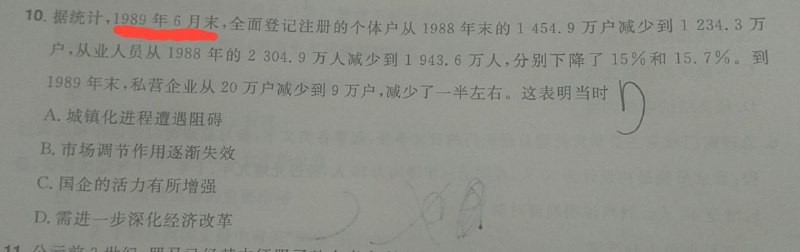 10. 据统计,1989 年 6 月末,全面登记注册的个体户从 1988 年末的 1 454.9 万户减少到 1 234.3 万
户,从业人员从 1988 年的 2 304.9 万人减少到 1 943.6 万人,分别下降了 15% 和 15.7%。到
1989 年末,私营企业从 20 万户减少到 9 万户,减少了一半左右。这表明当时 D
A. 城镇化进程遭遇阻碍
B. 市场调节作用逐渐失效
C. 国企的活力有所增强
D. 需进一步深化经济改革